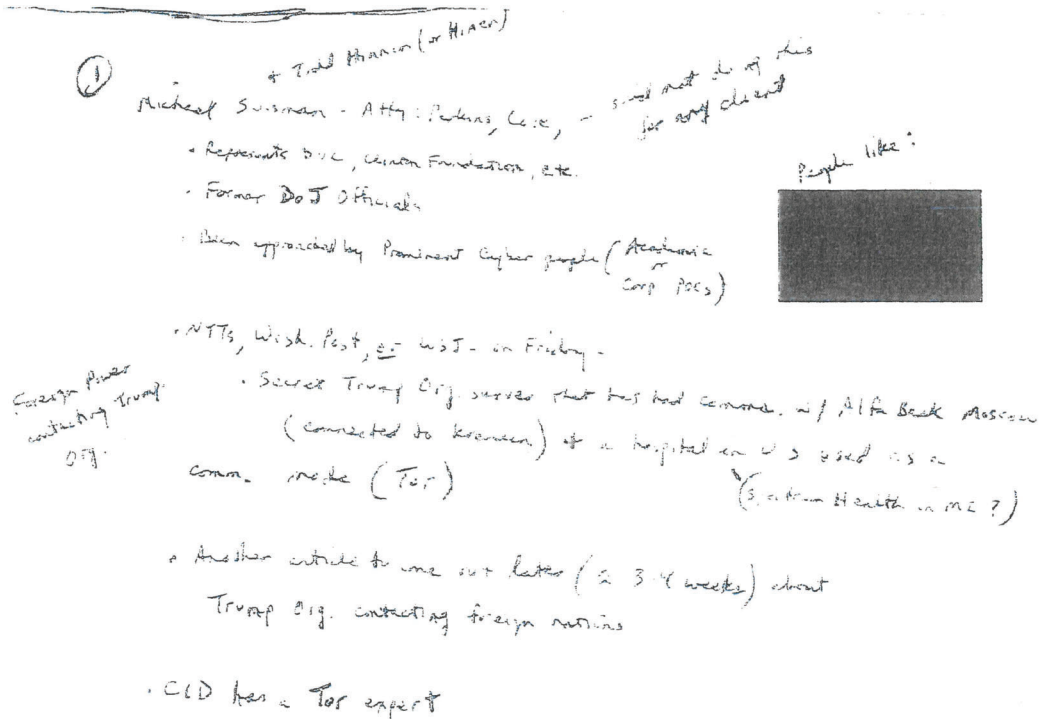 ①
+ Todd (or Hinen)
Micheal Susman - Atty: Perkins, Coie, - said not do of this
for any client
• Represents DNC, Clinton Foundation, etc.
People like:
• Former DoJ Officials
• Been approached by Prominent Cyber people (Academic
or
Corp POCs)
• NYTs, Wash. Post, or WSJ - on Friday -
Foreign Power
contacting Trump
Org.
• Secret Trump Org. server that has had comms. w/ Alfa Bank Moscow
(connected to Kremlin) + a hospital in US used as a
comm. node (Tor)
(Spectrum Health in MI?)
• Another article to come out later (≈ 3-4 weeks) about
Trump Org. contacting foreign nations
• CID has a Tor expert